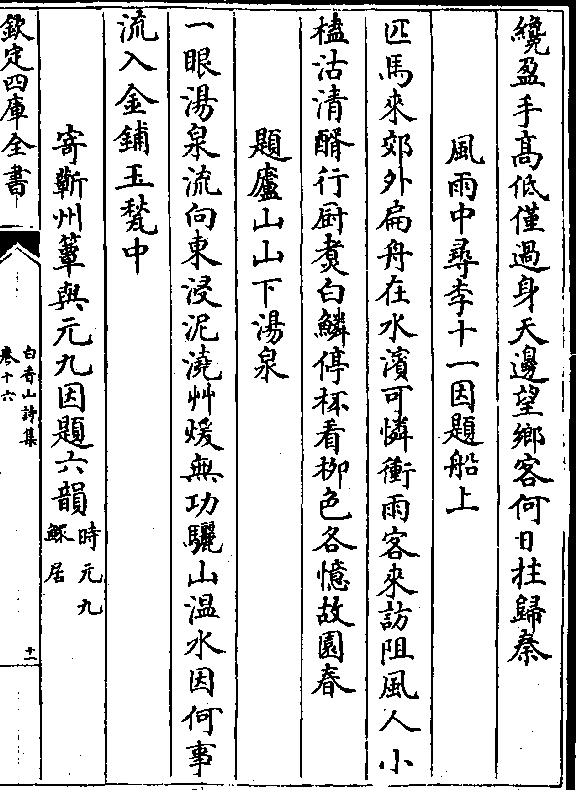 纔盈手高低僅過身天邊望鄉客何日拄歸秦
風雨中尋李十一因題船上
匹馬來郊外扁舟在水濱可憐衝雨客來訪阻風人小
榼沽清醑行厨煑白鱗停杯看栁色各憶故園春
題廬山山下湯泉
一眼湯泉流向東浸泥澆艸煖無功驪山温水因何事
流入金鋪玉甃中
寄蘄州簟與元九因題六韻時元九鰥居
欽定四庫全書
白香山詩集
卷十六
十二